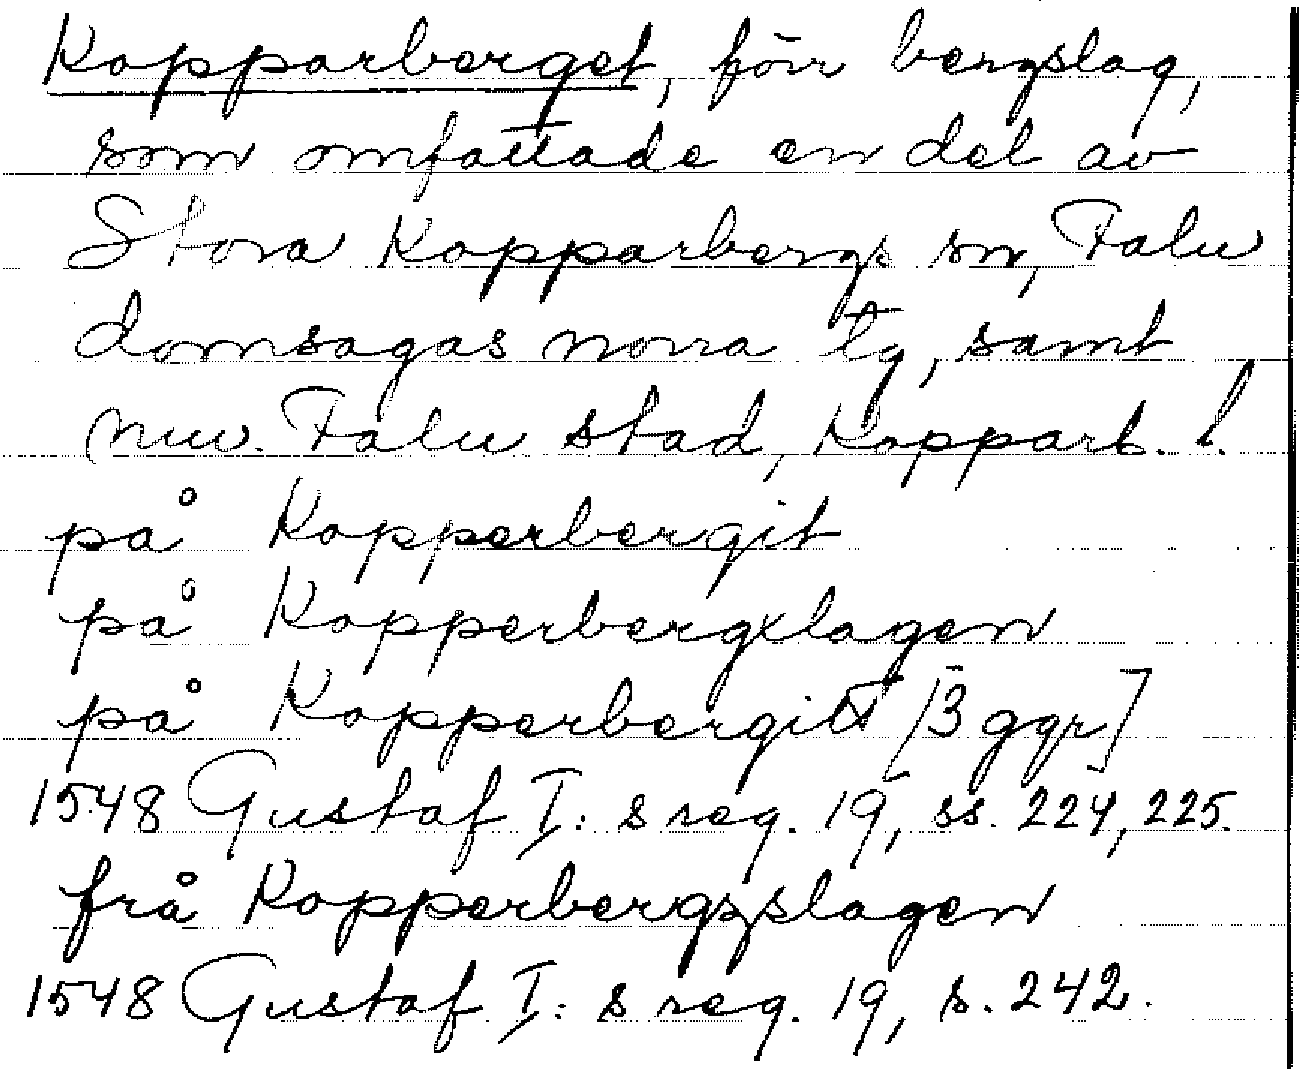 Kopparberget, förr bergslag,
som omfattade en del av
Stora Kopparbergs sn, Falu
domsagas norra tg, samt
nuv. Falu stad, Kopparb. l.
på Kopperbergit
på Kopperbergxlagen
på Kopperbergitt [3 ggr]
1548 Gustaf I:s reg. 19, ss. 224, 225.
från Kopperbergzslagen
1548 Gustaf I:s reg. 19, s. 242.